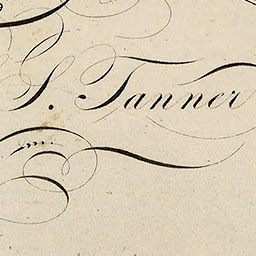 S. Tanner